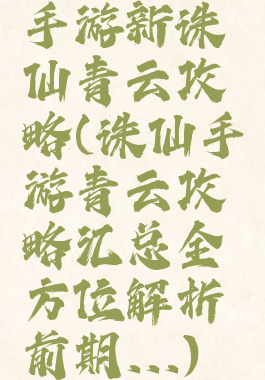 手游新诛
仙青云攻
略(诛仙手
游青云攻
略汇总全
方位解析
前期...)